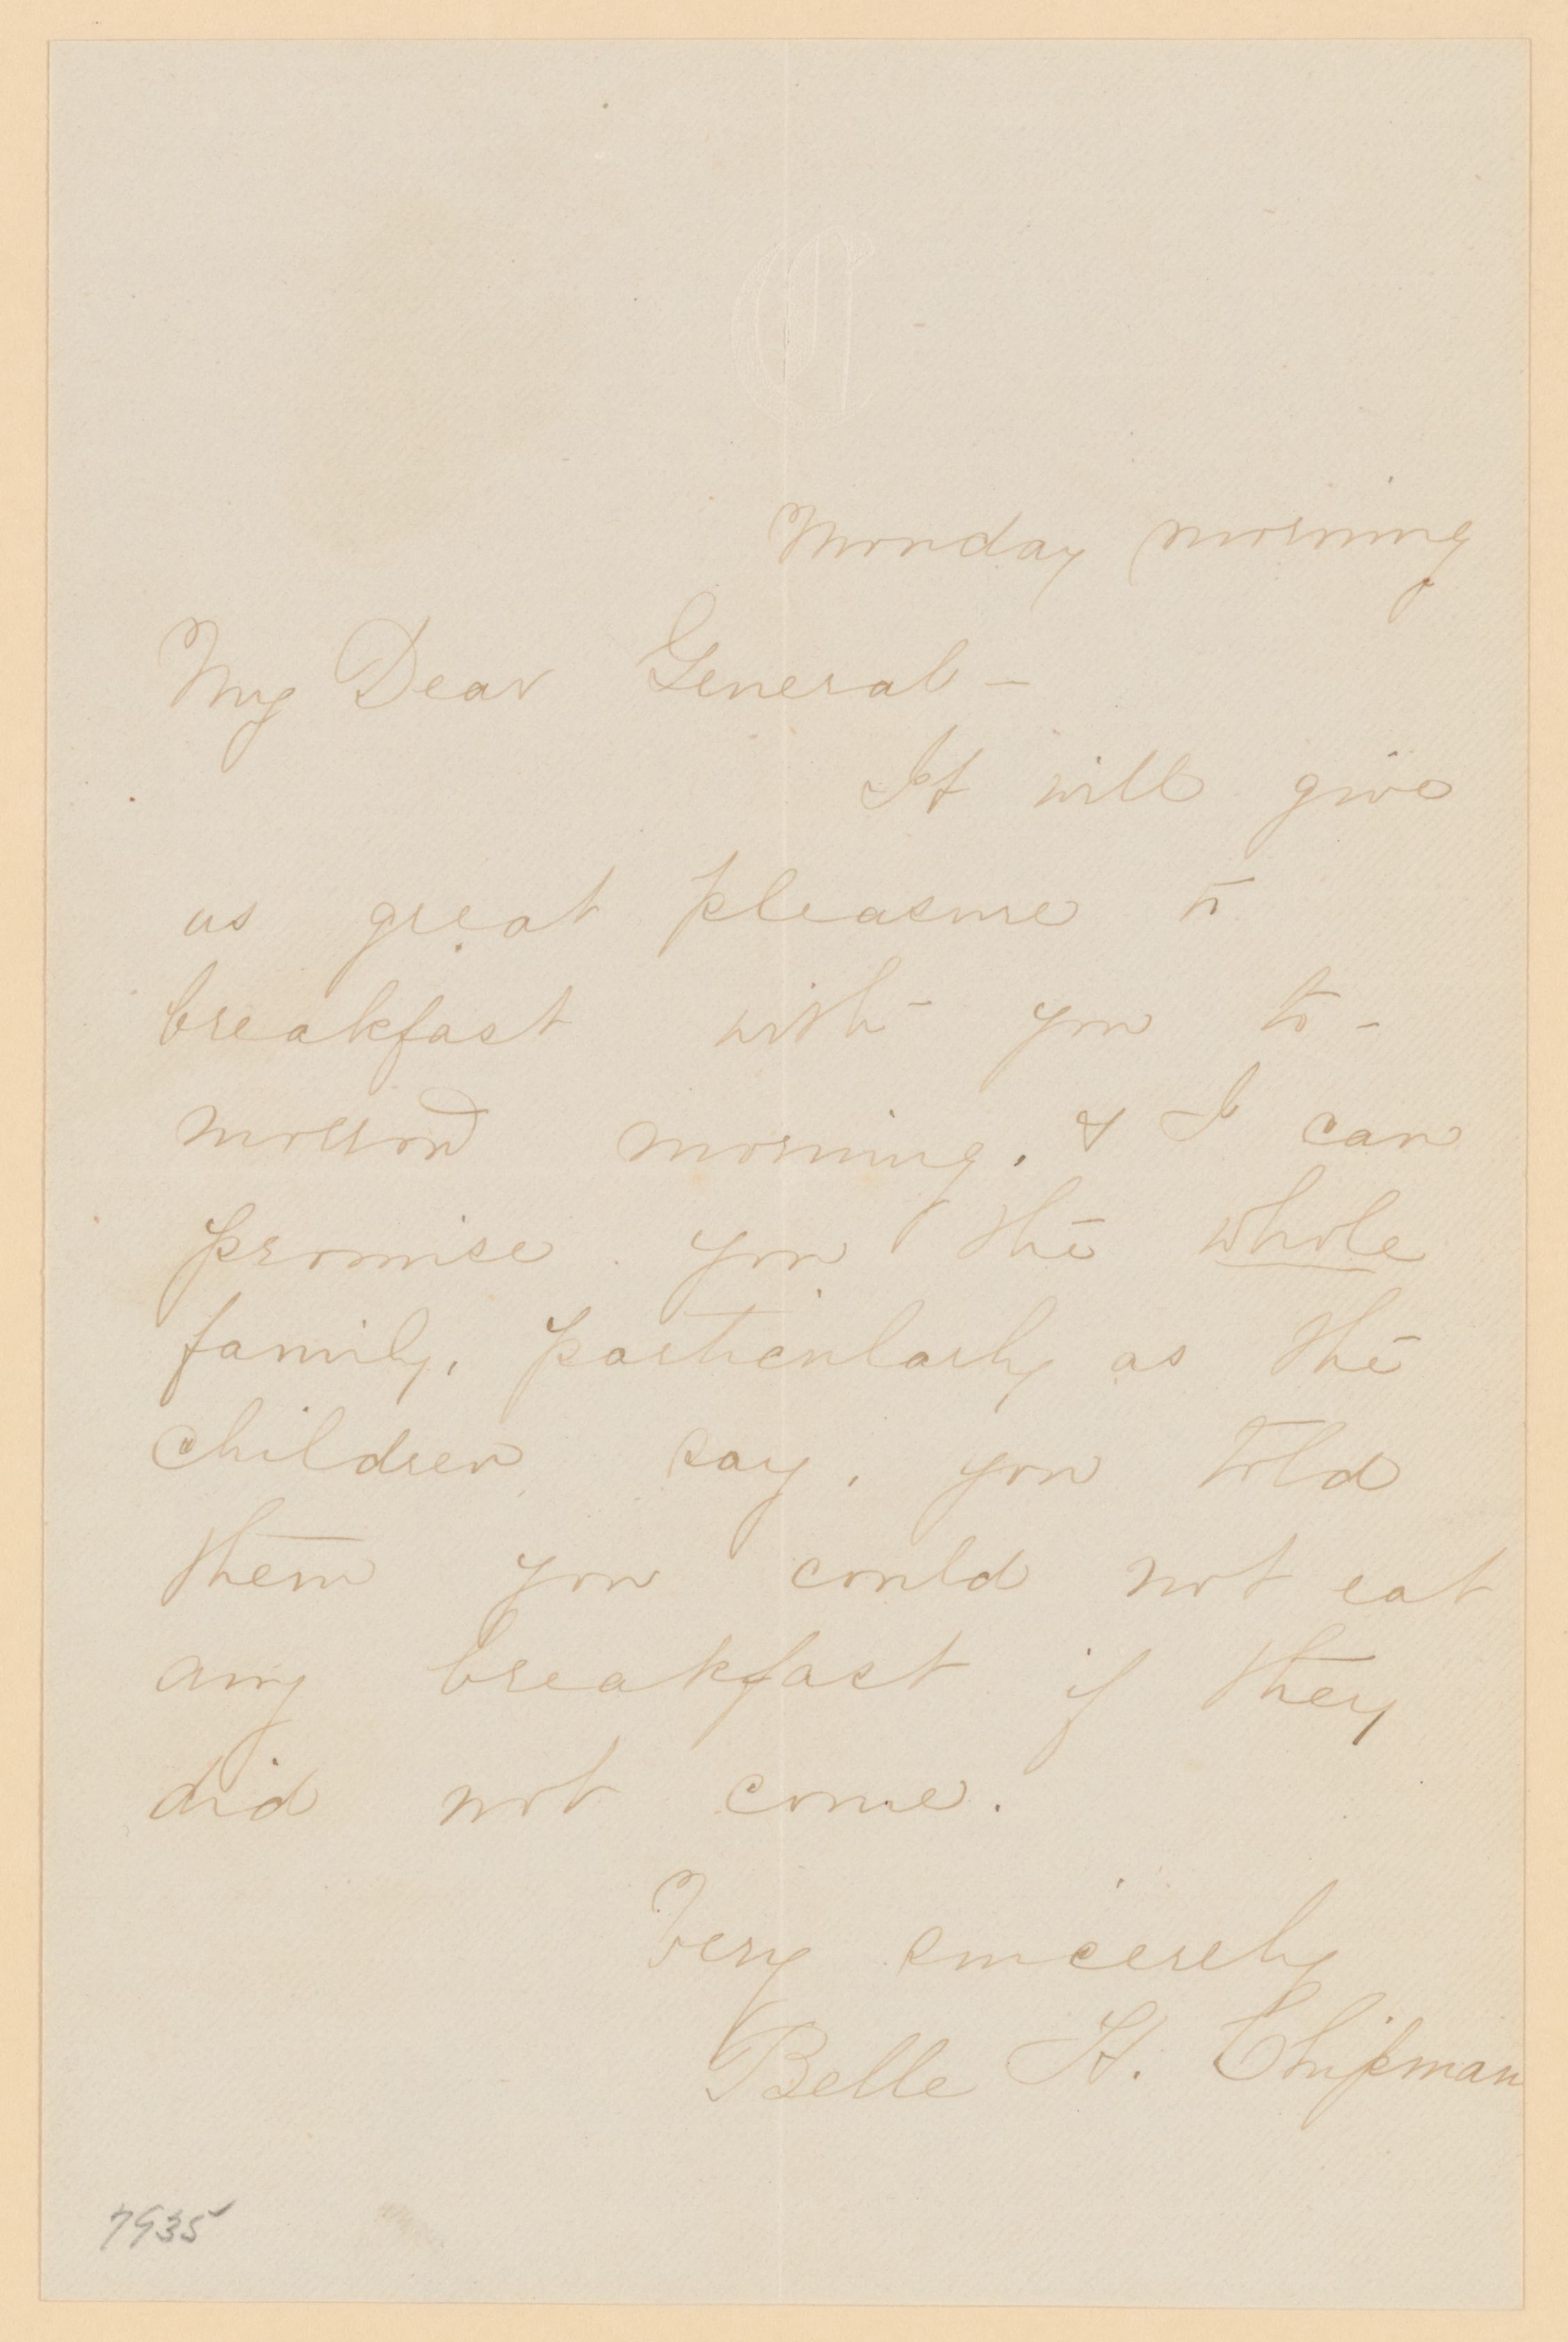 C
Monday morning
My Dear General –
It will give
us great pleasure to
breakfast with you to-
morrow morning, & I can
promise you the whole
family, particularly as the
children say, you told
them you could not eat
any breakfast if they
did not come.
Very sincerely
Belle H. Chipman
7935